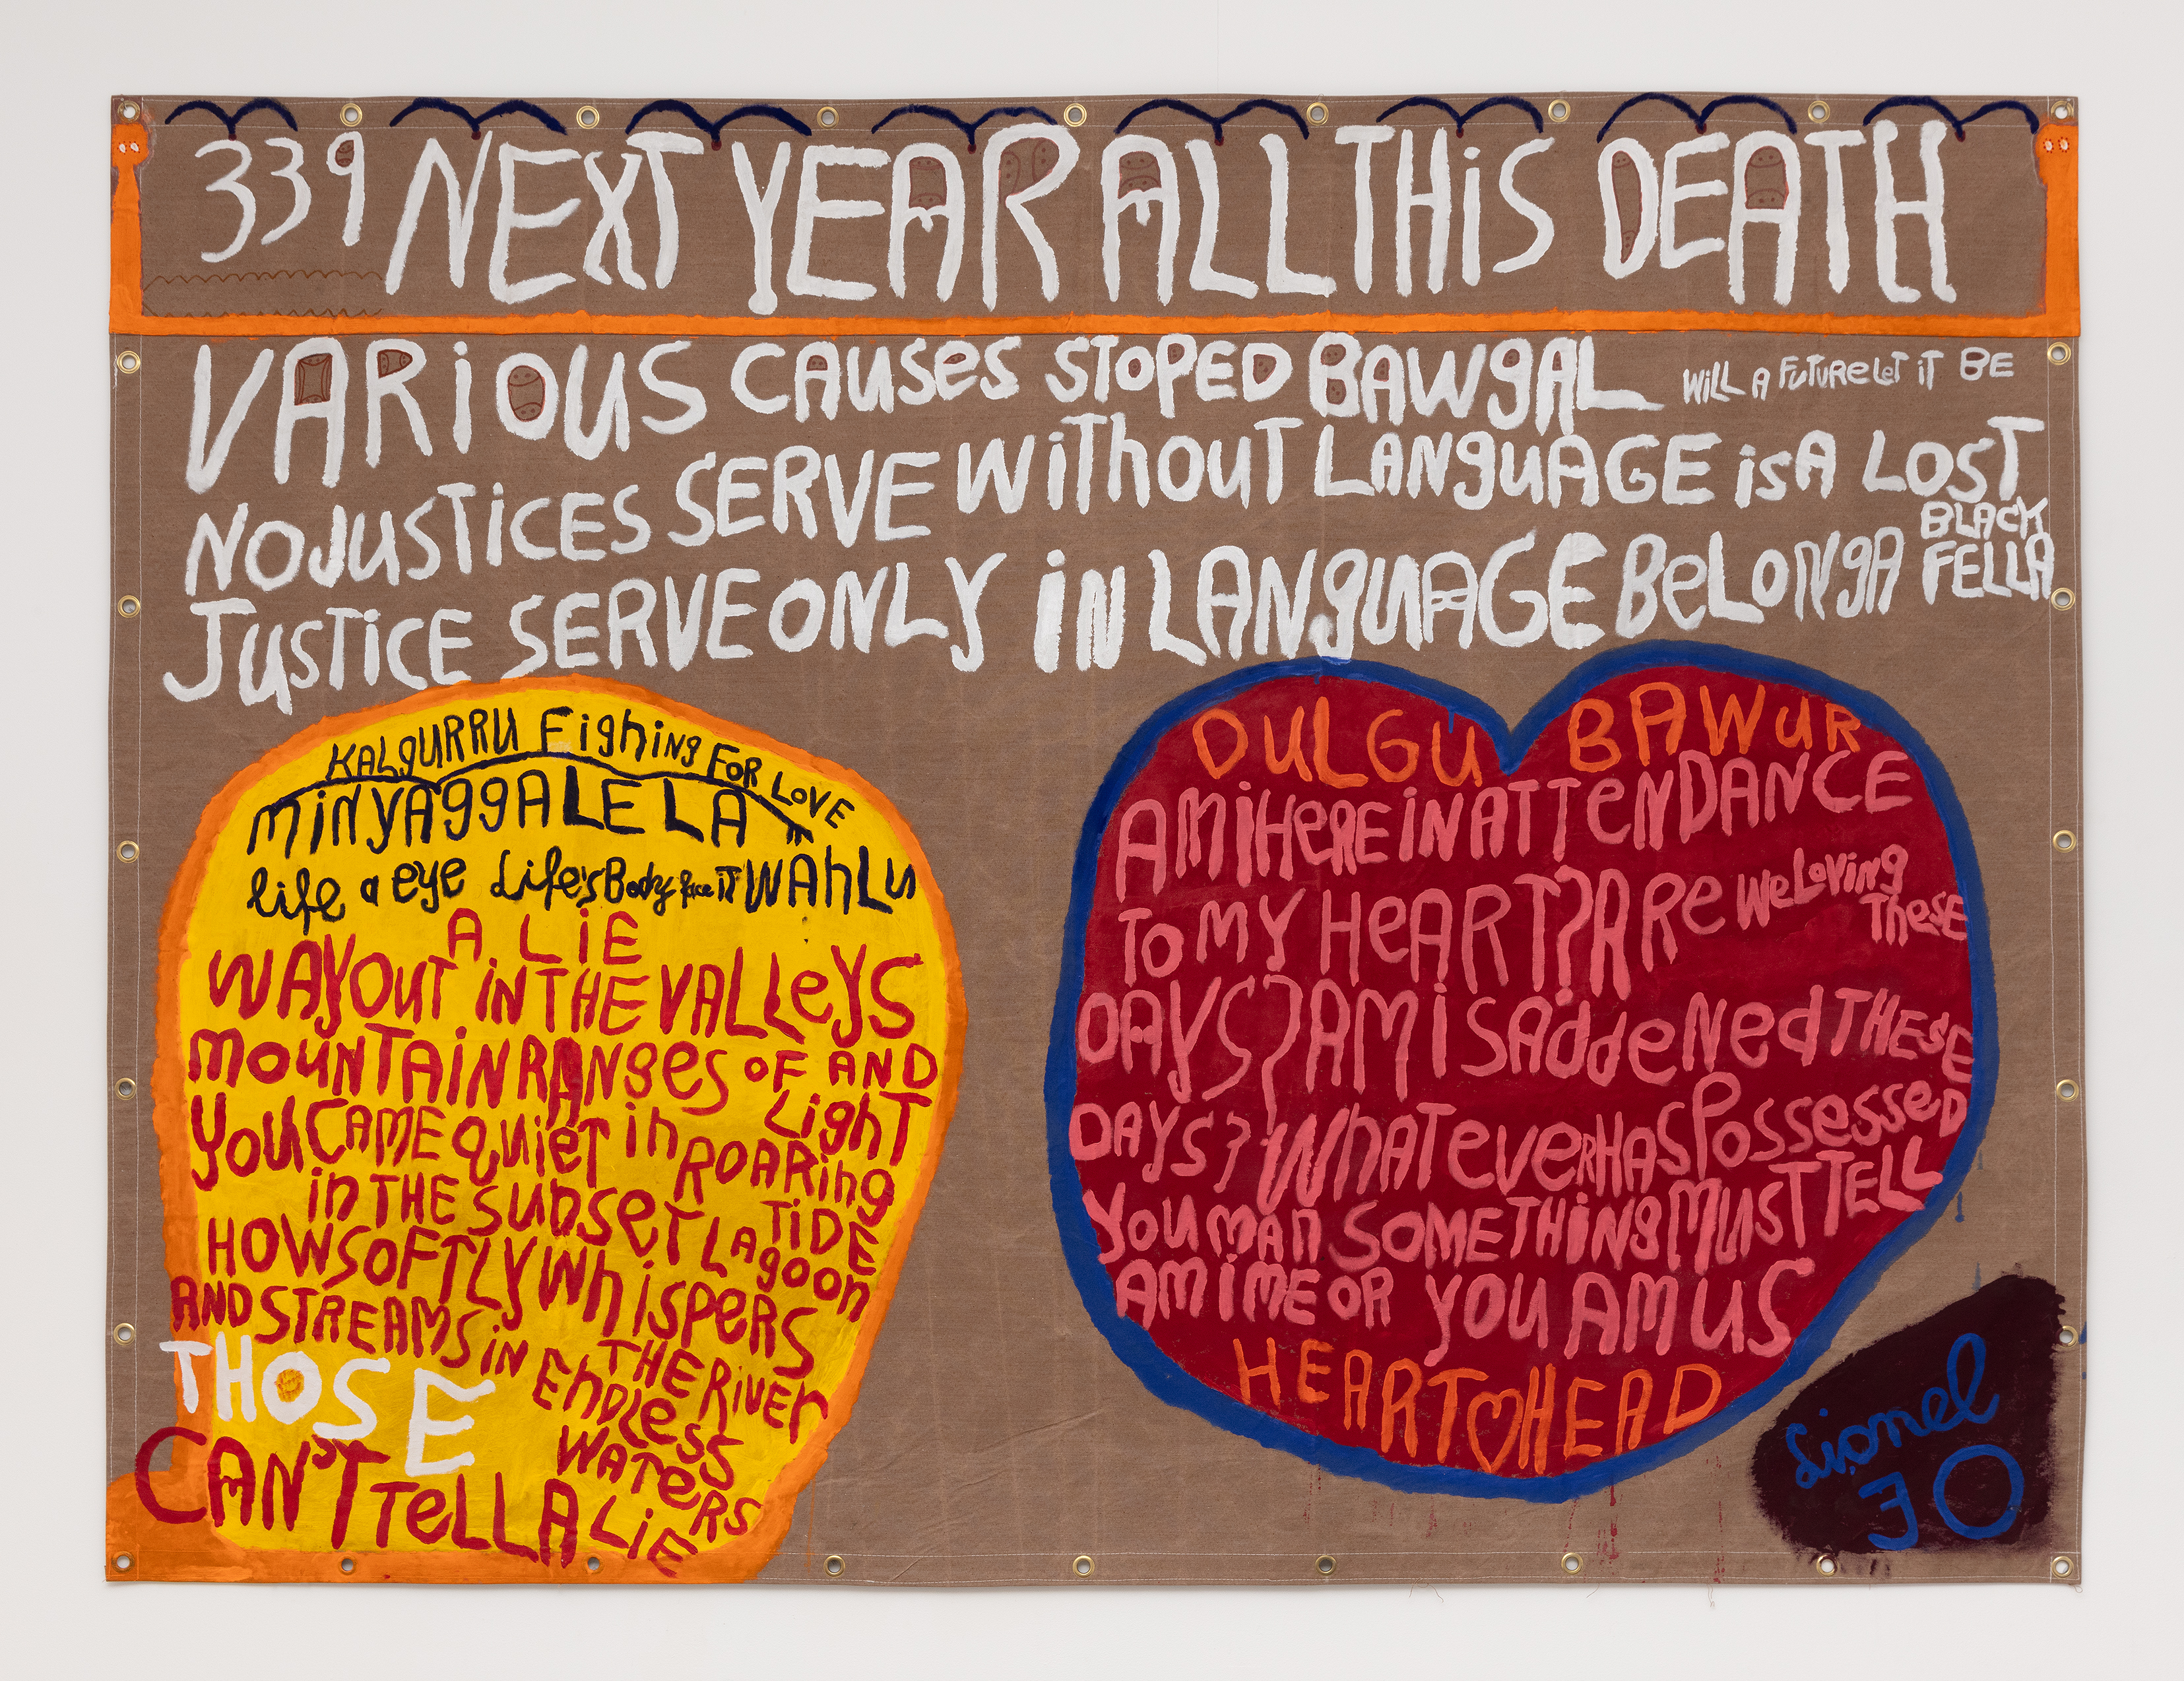 339 NEXT YEAR ALL THiS DEATH
VARiOUS CAUSes STOPED BAWgAL WiLL A FuTuReLeT iT BE
NOJUSTiCES SERVE WiThouT LANguAGE is A LOST
JuSTiCE SERVE ONLY iN LANguAGE BeLONgA BLACK FELLA
KALgURRU FighiNg FOR LOVE
minyAggALELA
life a eye Life's Body face iT WAhLu
A LiE
WAYOuT iN THE VALLeYS
mouNTAiN RANgeS OF AND
youCAME QuieT in ROARing LighT
in THE SunSeT LAgoon TiDE
HOW SOFTLY Whispers
AND STREAMS iN THE RiVER
THOSE EnDLeSS WATeRS
CAN'T TeLL A LiE
DULGU BAWUR
AMiHeReiNATTeNDANCE
To MY HeART? ARe WeLoviNg TheSE
DAYS? AM i SAddeNed THeSE
DAYS? WhATeveRHAS PoSSeSSeD
You MAn SOMETHiNg MuST TELL
AM i ME OR YOU AM US
HEART♡HEAD
Lionel
JO